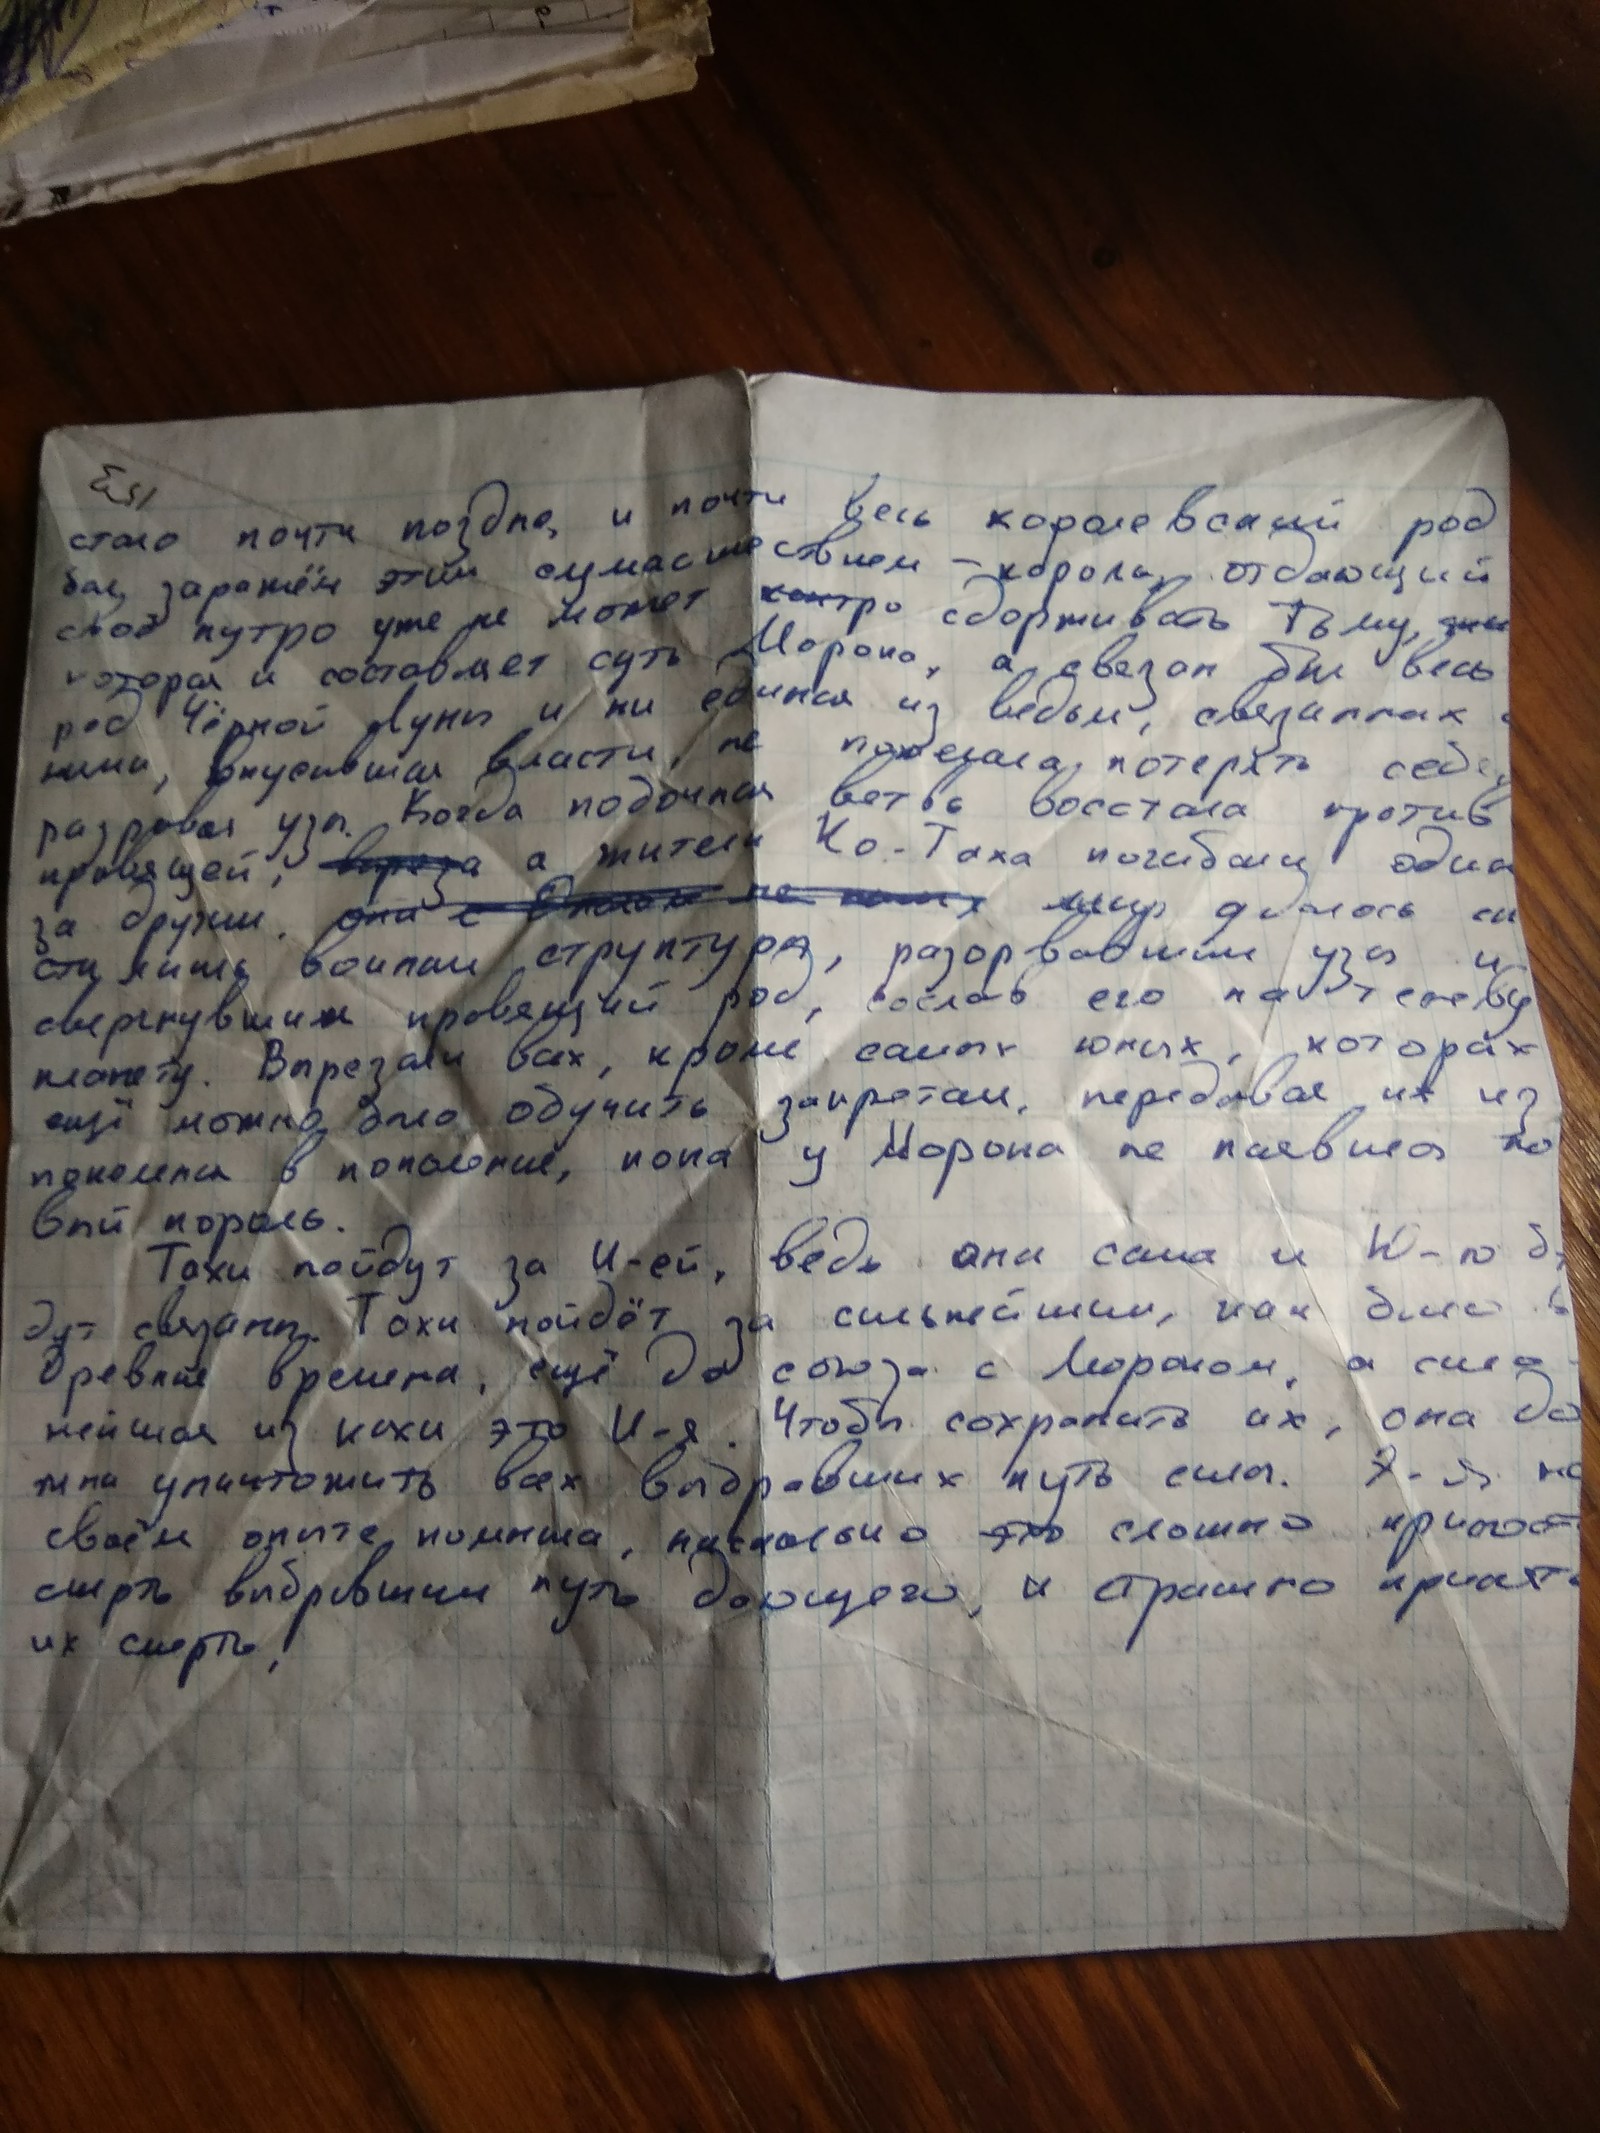 стало почти поздно, и почти весь королевский род
был заражён этим сумасшествием – король, отдающий
своё нутро уже не может сдерживать Тьму,
которая и составляет суть Морона, а связан был весь
род Чёрной Луны и ни единая из ведьм, связанных с
ними, вкусившая власти, не пожелала потерять себя,
разрывая узы. Когда побочная ветвь восстала против
правящей, а жители Ко-Таха погибали один
за другим, мир удалось
сти лишь воинам структуры, разорвавшим узы и
свергнувшим правящий род, сослав его на
планету. Вырезали всех, кроме самых юных, которых
ещё можно было обучить запретам, передавая их из
поколения в поколение, пока у Морона не появился но
вый король.
Тахи пойдут за И-ей, ведь они сама и Ю-ю бу
дут связаны. Тахи пойдёт за сильнейшим, как было в
древние времена, ещё до союза с Мороном, а силь
нейшая из кахи это И-я. Чтобы сохранить их, она дол
жна уничтожить всех выбравших путь силы. Э-я на
своём опыте помнила, насколько это сложно
смерть выбравшим путь дающего, и страшно принять
их смерть,